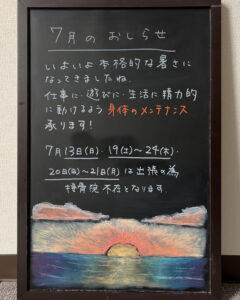 7月のおしらせ
いよいよ本格的な暑さに
なってきましたね。
仕事に・遊びに・生活に精力的
に動けるよう身体のメンテナンス
承ります!
7月13日(日)・19(土)~24(木)・
20日(日)~21日(月)は出張の為
接骨院不在となります。